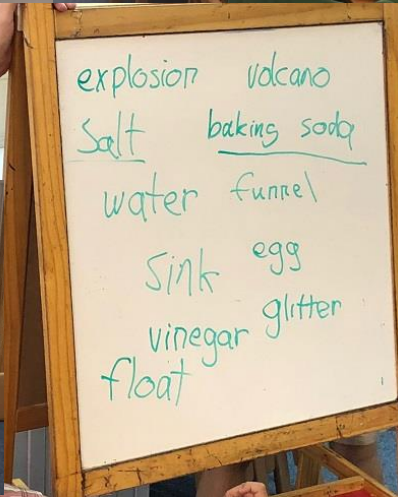 explosion volcano
Salt baking soda
water funnel
sink egg
vinegar glitter
float